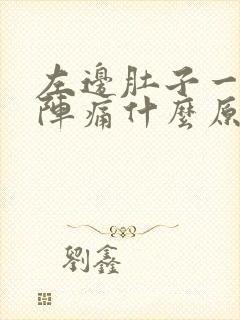 左邊肚子一
陣痛什麼原
劉鑫